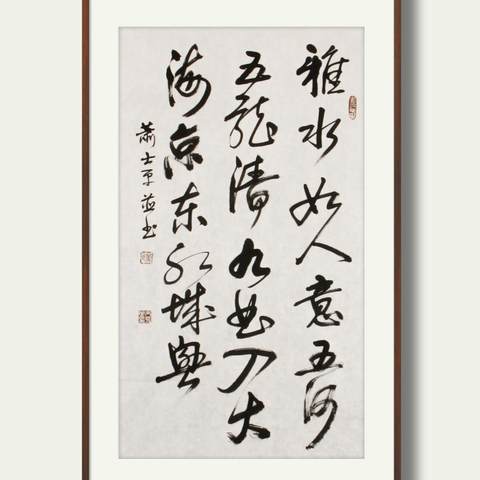 雅水如人意五河
五龍清九曲入大
海京东红城興
萧士平並书